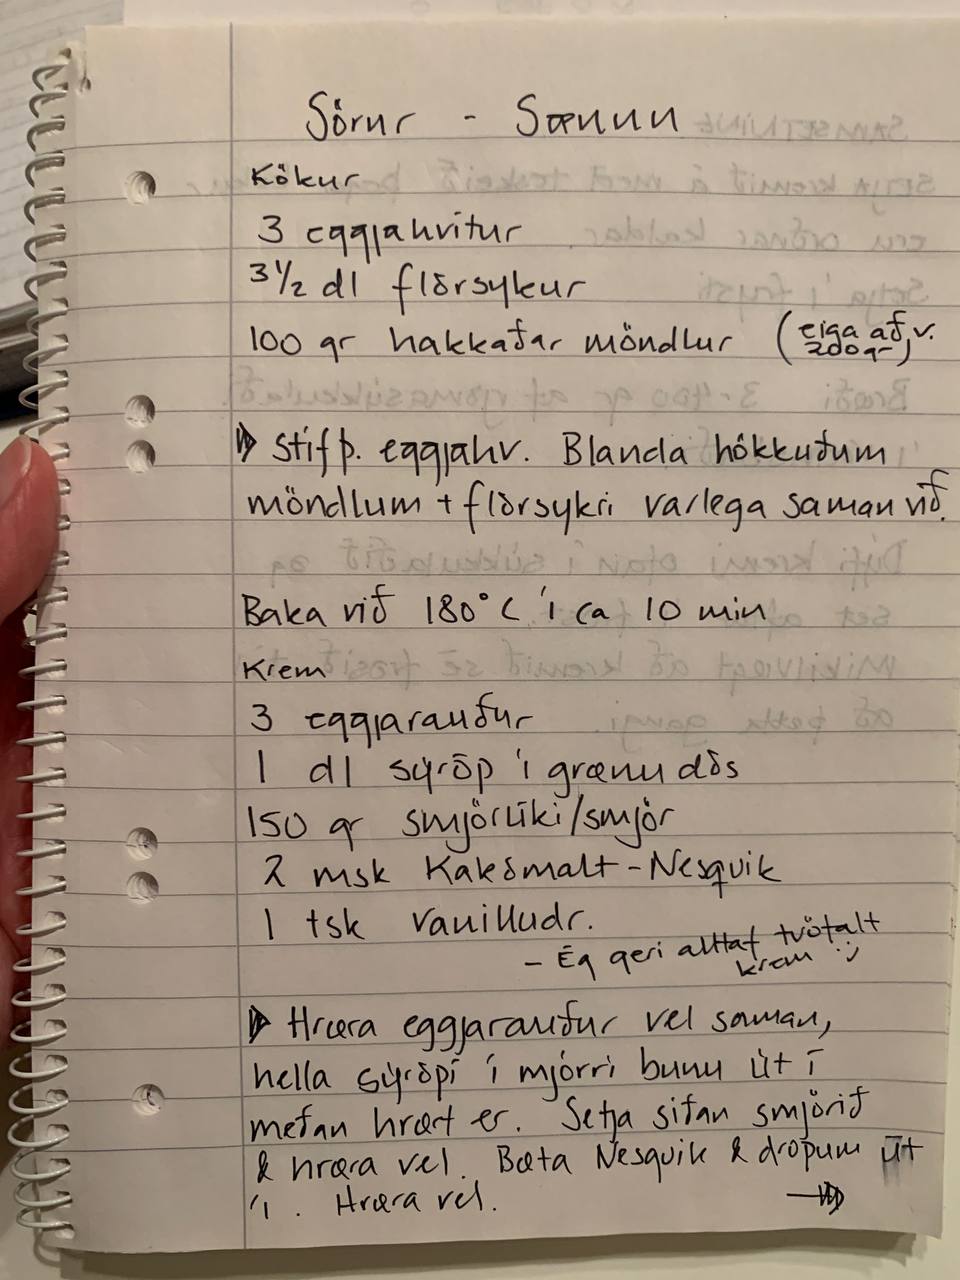 Sörur - Sæunn
Kökur
3 eggjahvítur
3½ dl flórsykur
100 gr hakkaðar möndlur (eiga að v. 200 gr)
Stífþ. eggjahv. Blanda hökkuðum
möndlum + flórsykri varlega saman við.
Baka við 180°C í ca 10 min
Krem
3 eggjarauður
1 dl sýróp í grænu dós
150 gr smjörlíki/smjör
2 msk Kakómalt - Nesquik
1 tsk vanilludr.
- Ég geri alltaf tvöfalt
krem :)
Hræra eggjarauður vel saman,
hella sýrópi í mjórri bunu út í
meðan hrært er. Setja síðan smjörið
& hræra vel. Bæta Nesquik & dropum út
í. Hræra vel. →